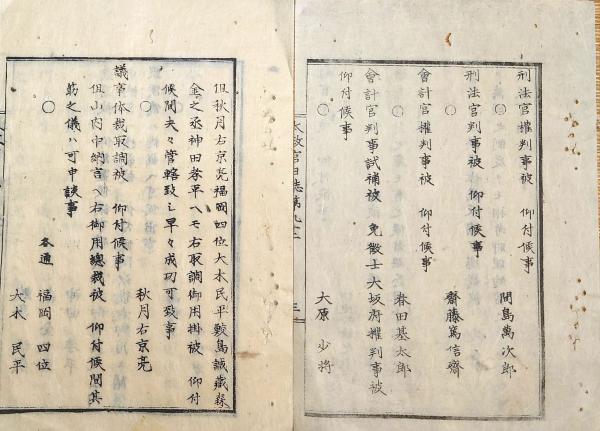 刑法官權判事被　仰付候事
間島萬次郎
○
刑法官判事被　仰付候事
齋藤篤信齋
○
會計官權判事被　仰付候事
春田基太郎
○
會計官判事試補被　免徴士大坂府權判事被
仰付候事
大原少將
太政官日誌第九十二
三
但秋月右京亮福岡四位大木民平鮫島誠藏森
金之丞神田孝平ヘモ右取調御用掛被　仰付
候間夫々管轄致シ早々成功可致事
秋月右京亮
○
議事体裁取調被　仰付候事
但山内中納言ヘ右御用總裁被　仰付候間其
筋之儀ハ可申談事
各通
福岡四位
○
大木民平